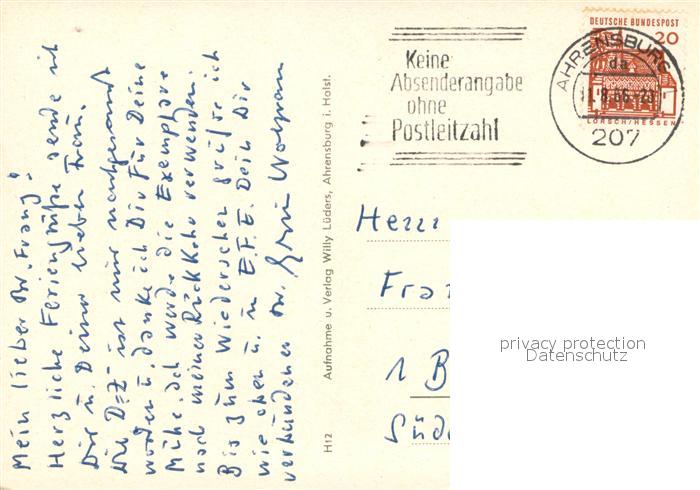 Mein lieber Br. Franz!
Herzliche Feriengrüße sende ich
Dir u. Deiner lieben Frau.
Die "D=Z" ist mir nachgesandt
worden u. danke ich Dir für Deine
Mühe. Ich werde die Exemplare
nach meiner Rückkehr verwenden.
Bis zum Wiedersehen grüße ich
wie eben u. i. E.F.E. Dein Dir
verbundener Br. Erwin Wolfram
H12
Aufnahme u. Verlag Willy Lüders, Ahrensburg i. Holst.
Keine
Absenderangabe
ohne
Postleitzahl
DEUTSCHE BUNDESPOST
20
LORSCH/HESSEN
AHRENSBURG
da
207
Herrn
Fra
1 B
Süd
privacy protection
Datenschutz